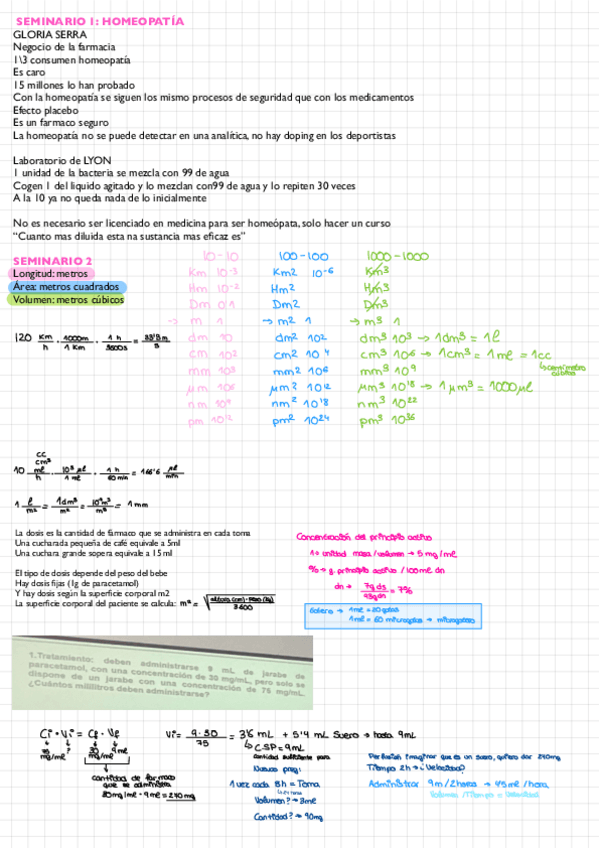 SEMINARIO 1: HOMEOPATÍA
GLORIA SERRA
Negocio de la farmacia
1\3 consumen homeopatía
Es caro
15 millones lo han probado
Con la homeopatía se siguen los mismo procesos de seguridad que con los medicamentos
Efecto placebo
Es un farmaco seguro
La homeopatía no se puede detectar en una analítica, no hay doping en los deportistas
Laboratorio de LYON
1 unidad de la bacteria se mezcla con 99 de agua
Cogen 1 del liquido agitado y lo mezclan con99 de agua y lo repiten 30 veces
A la 10 ya no queda nada de lo inicialmente
No es necesario ser licenciado en medicina para ser homeópata, solo hacer un curso
“Cuanto mas diluida esta na sustancia mas eficaz es”
SEMINARIO 2
Longitud: metros
Área: metros cuadrados
Volumen: metros cúbicos
10-10
Km 10-3
Hm 10-2
Dm 0'1
→ m 1
dm 10
cm 10²
mm 10³
µm 10⁶
nm 10⁹
pm 10¹²
100-100
Km2 10-6
Hm2
Dm2
→ m2 1
dm² 10²
cm2 10⁴
mm² 10⁶
µm² 10¹²
nm² 10¹⁸
pm² 10²⁴
1000-1000
Km3
Hm3
Dm3
→ m3 1
dm³ 10³ → 1dm³ = 1l
cm³ 10⁶ → 1cm³ = 1ml = 1cc
↳ centímetro cúbicos
mm³ 10⁹
µm³ 10¹⁸ → 1µm³ = 1000µl
nm³ 10²²
pm³ 10³⁶
120 Km/h · 1000m/1Km · 1h/3600s = 33'3m/s
cc
cm³
10 ml/h · 10³ µl/1 ml · 1h/60 min = 166'6 µl/min
1 l/m² = 1dm³/m² = = 1mm
La dosis es la cantidad de farmaco que se administra en cada toma
Una cucharada pequeña de café equivale a 5ml
Una cuchara grande sopera equivale a 15ml
El tipo de dosis depende del peso del bebe
Hay dosis fijas (1g de paracetamol)
Y hay dosis según la superficie corporal m2
La superficie corporal del paciente se calcula: m² = √altura (cm) · peso (kg)/3600
Concentración del principio activo
1º unidad masa/volumen → 5 mg/ml
% → g. principio activo / 100ml dn
dn → 7g ds/93g dn = 7%
1ml = 20 gotas
1ml = 60 microgotas → microgotero
1.Tratamiento: deben administrarse 9 mL de jarabe de
paracetamol, con una concentración de 30 mg/mL, pero solo se
dispone de un jarabe con una concentración de 75 mg/mL.
¿Cuántos mililitros deben administrarse?
Ci · Vi = Cf · Vf
75 mg/ml ? 30 mg/ml 9ml
cantidad de farmaco
que se administra
30mg/ml · 9ml = 270 mg
Vi = 9·30/75 = 3'6 mL + 5'4 mL Suero → hasta 9mL
↳ C.S.P = 9mL
cantidad suficiente para
Nueva preg:
1 vez cada 8h = Toma
Volumen? → 3ml
Cantidad? → 90mg
Perfusión imaginar que es un suero, quiero dar 270mg
Tiempo 2h → ¿Velocidad?
Administrar 9m/2horas → 4'5ml/hora
Volumen/Tiempo = Velocidad